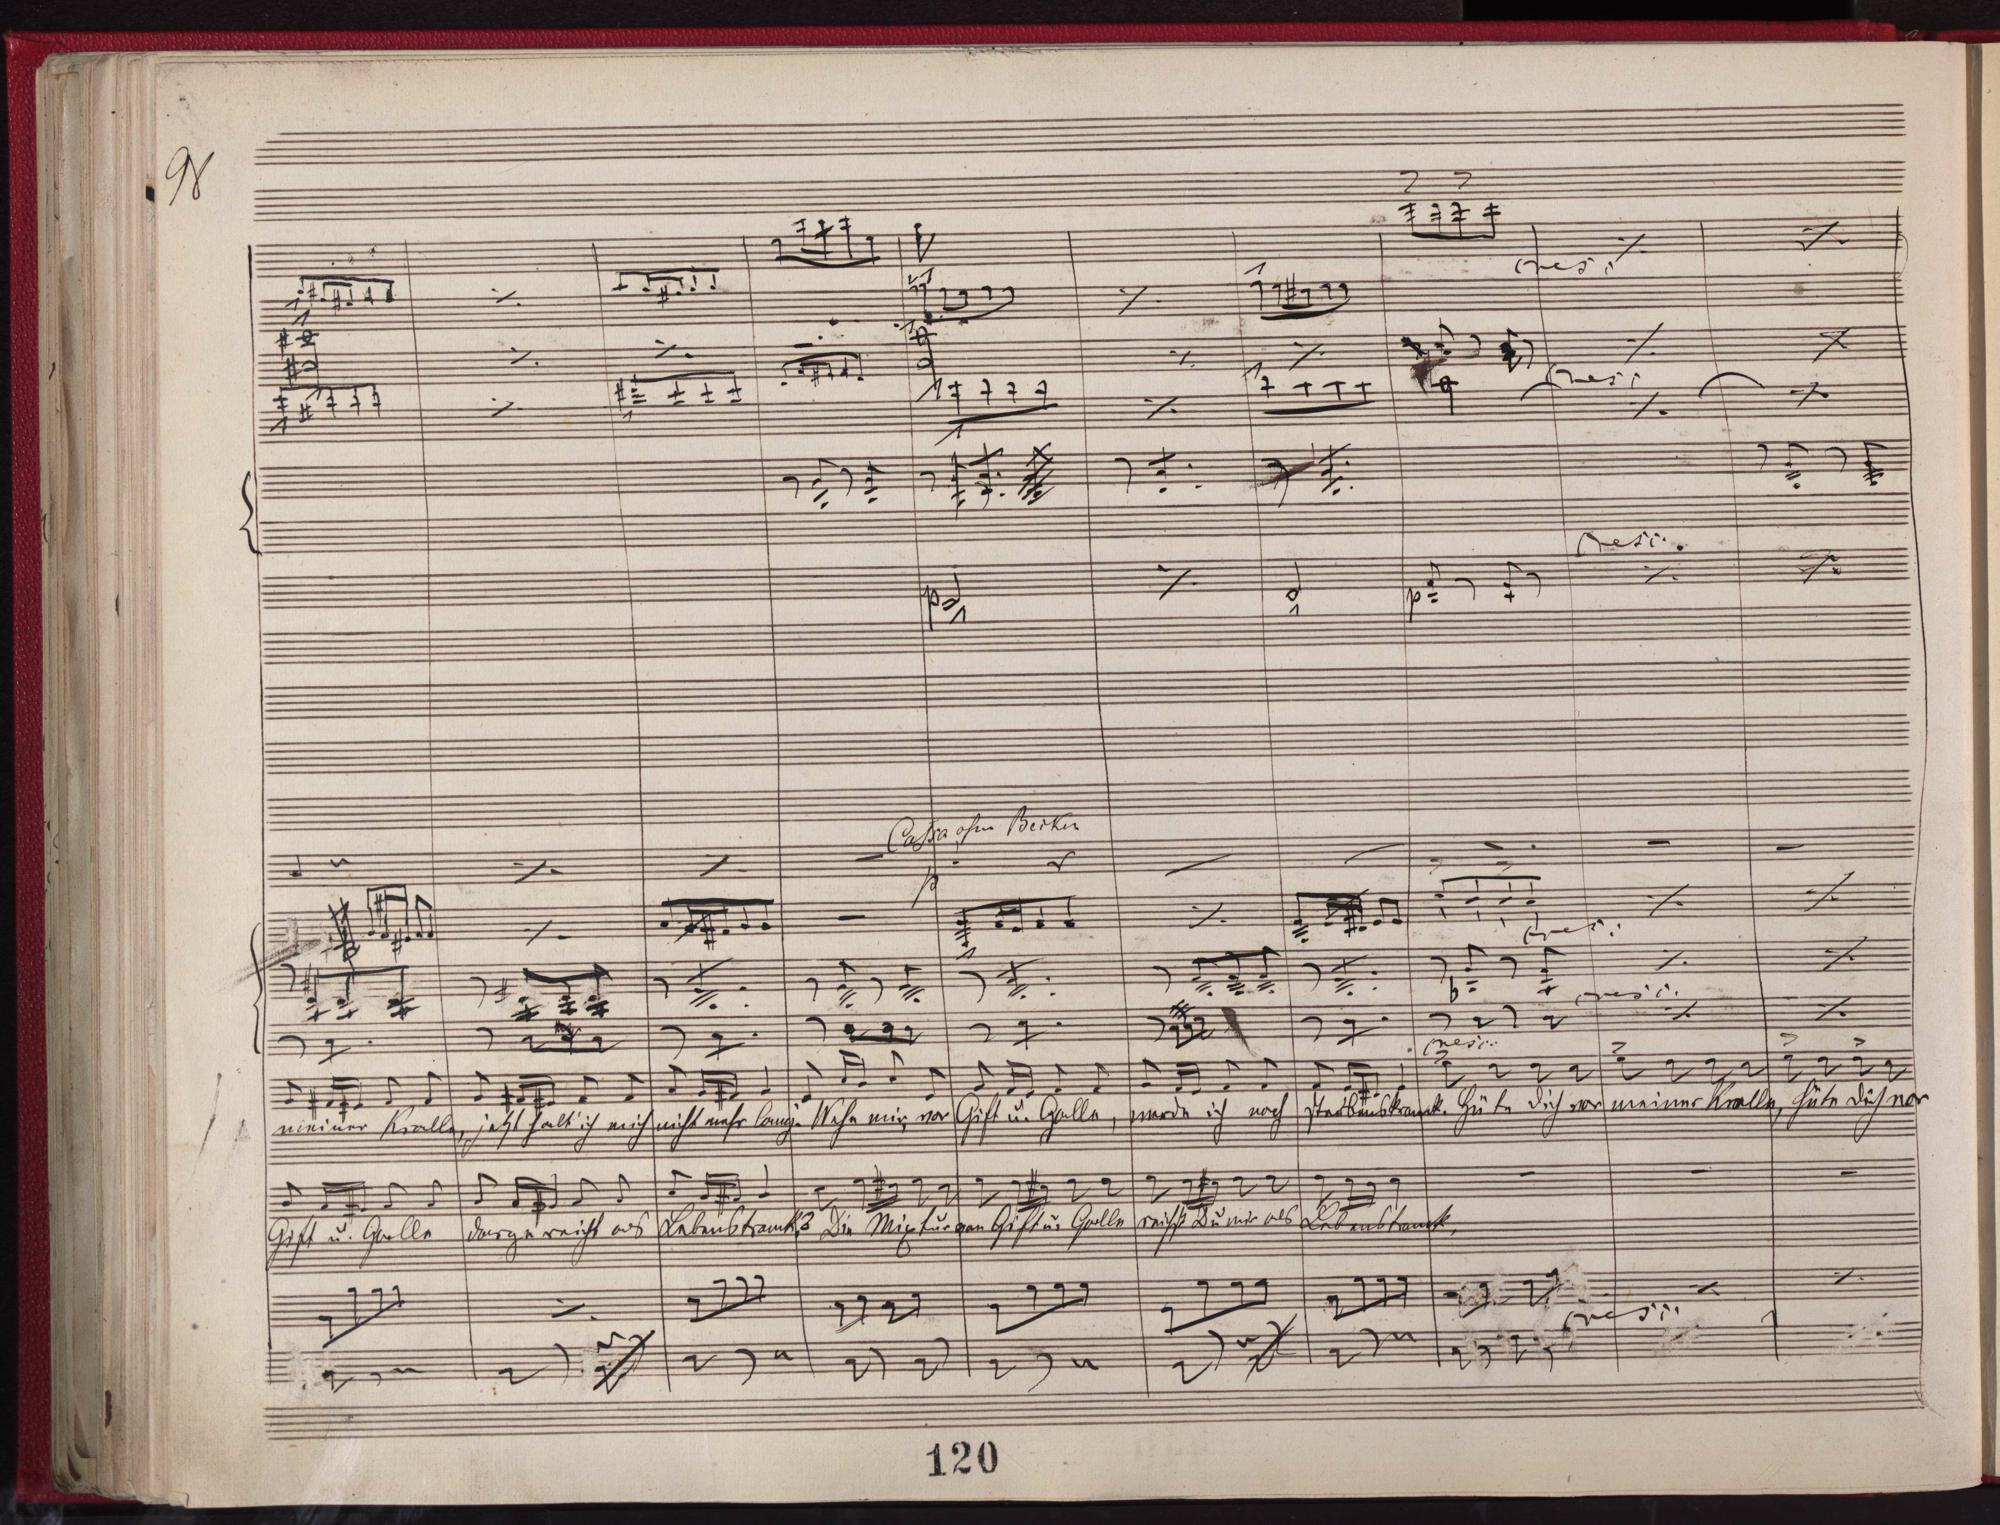 98
cresc:
cresc:
cresc:
p
p
Cassa ohne Becken
p
cresc:
cresc:
cresc:
meiner Kralle, jetzt halt ich mich nicht mehr lang. Wehe mir, vor Gift u. Galle, werde ich noch sterbenskrank. Hüte dich vor meiner Kralle, hüte dich vor
Gift u. Galle dargereicht als Lebenstrank? Die Mixtur von Gift u. Galle reichst Du mir als Lebenstrank,
cresc:
120